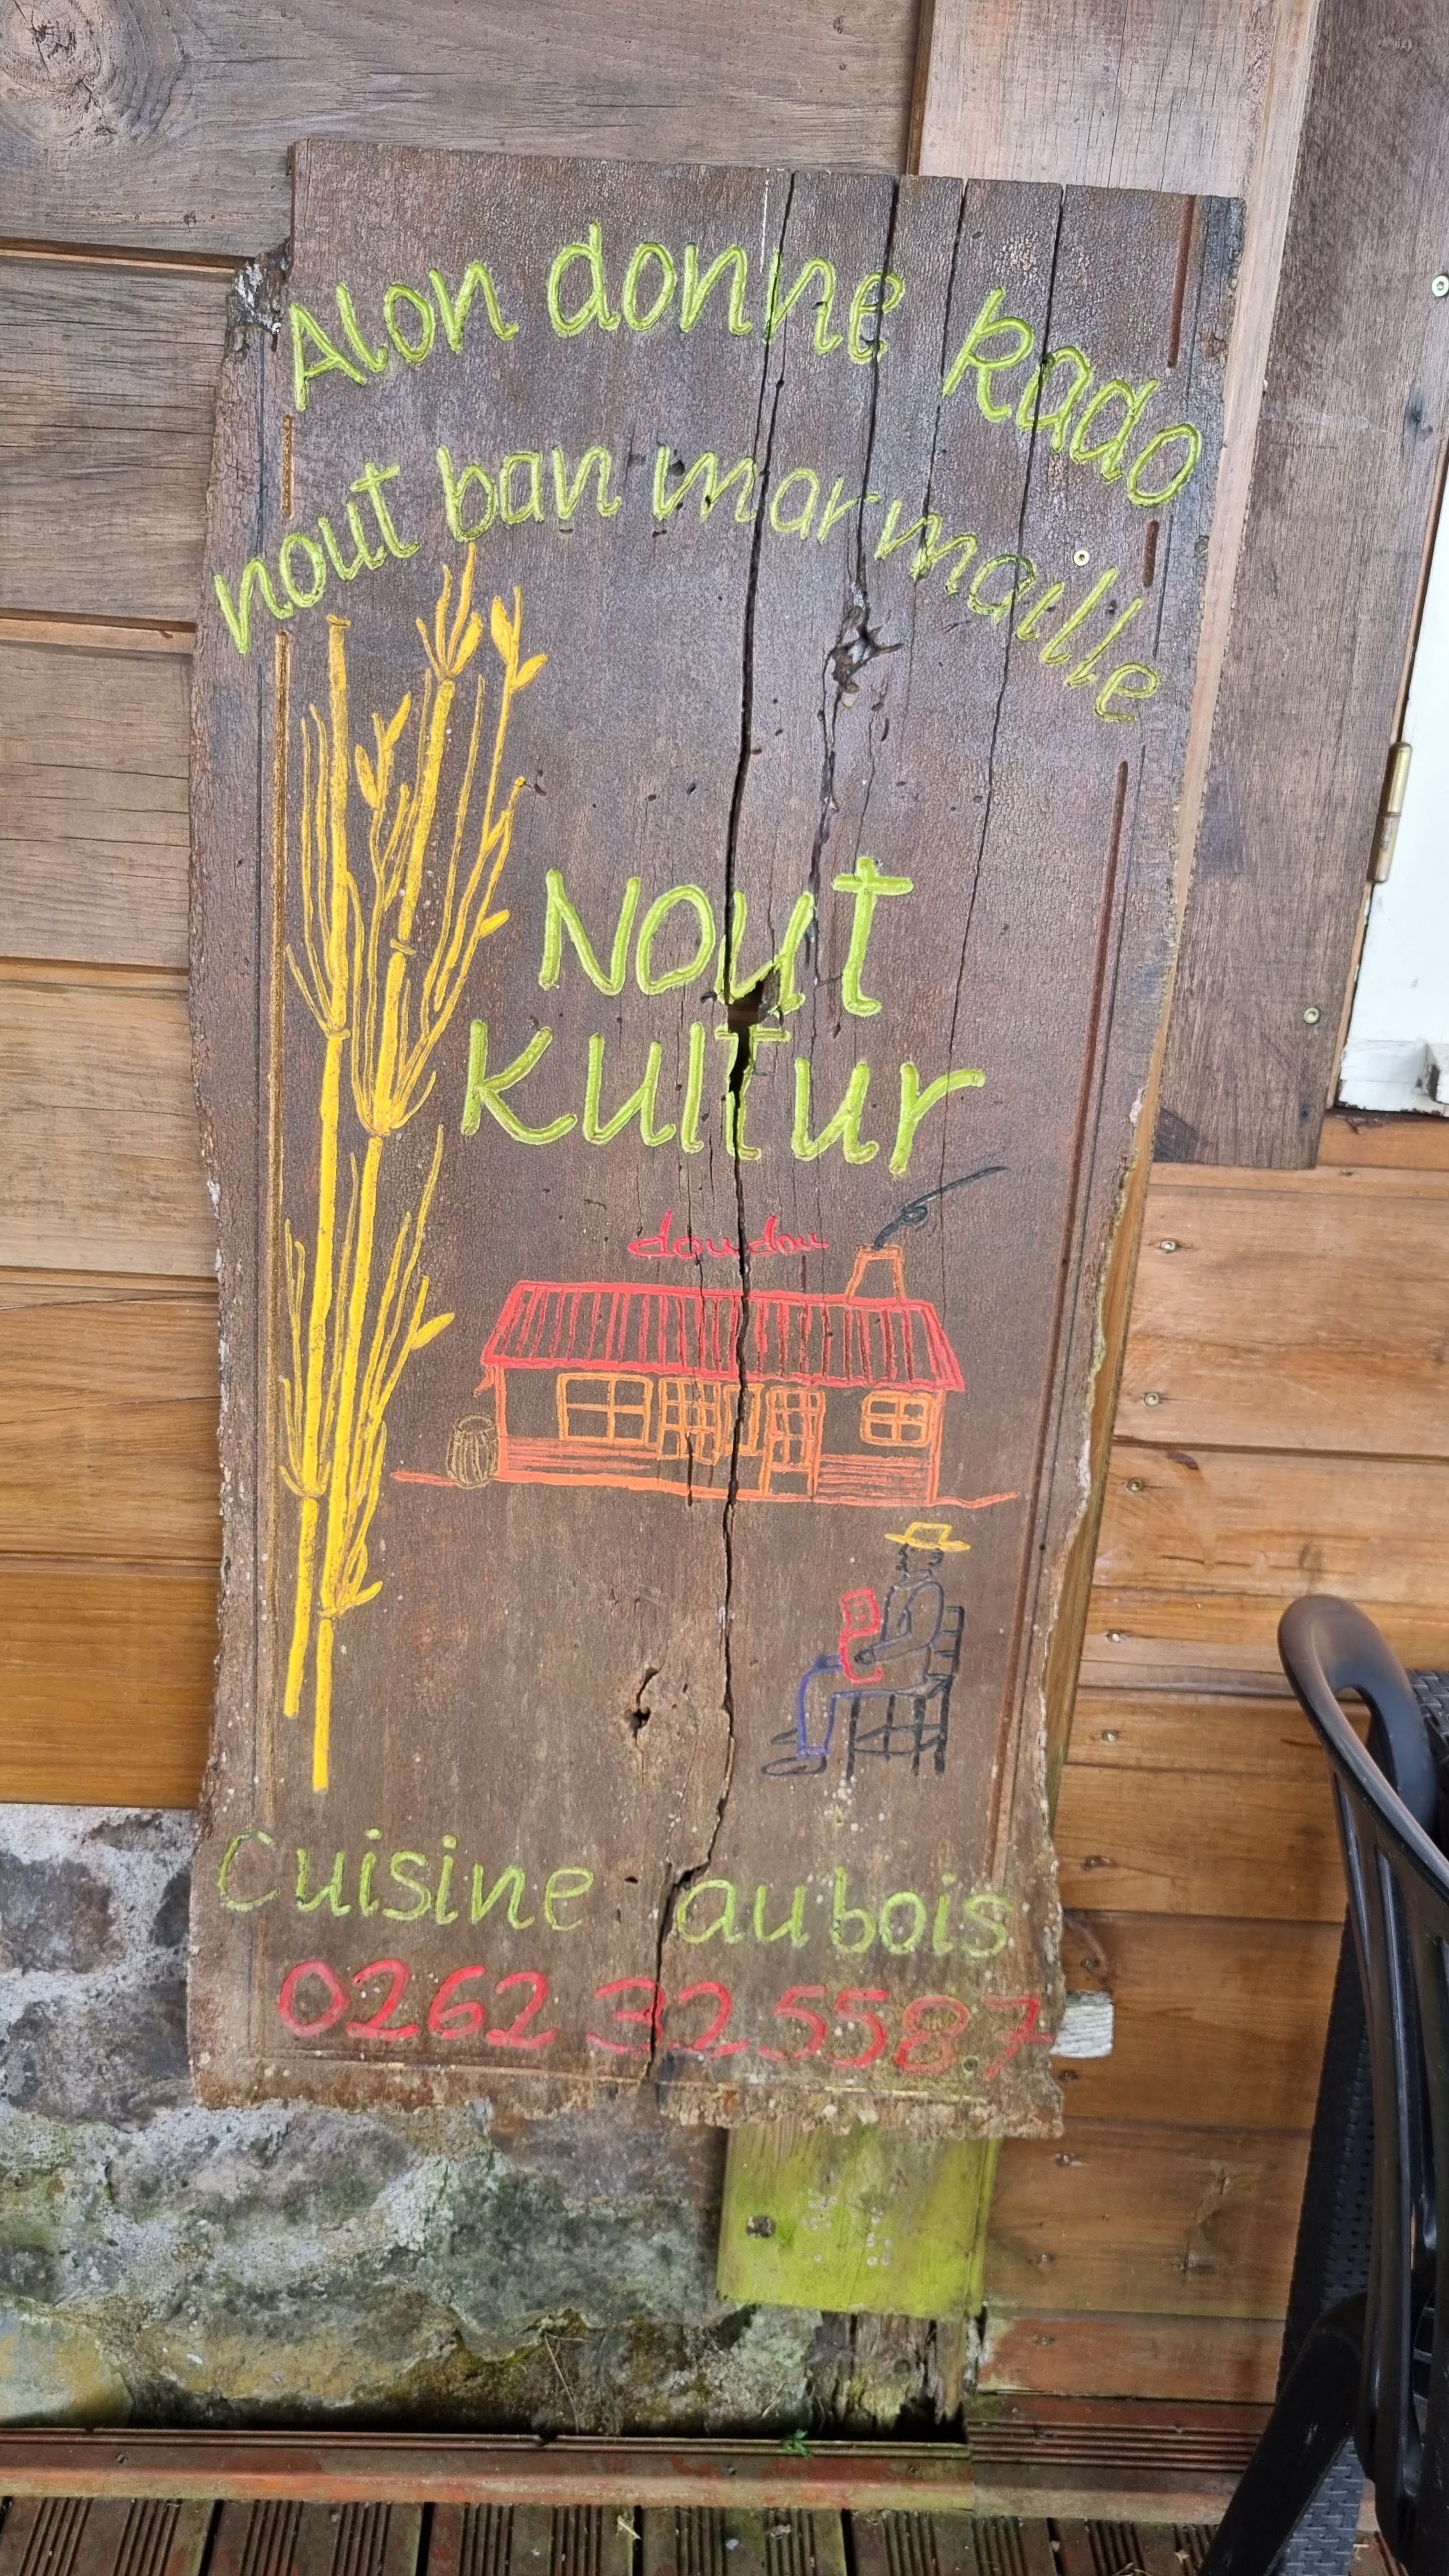 Alon donne kado
nout ban marmaille
Nout
Kultur
doudou
Cuisine au bois
0262 32 5587